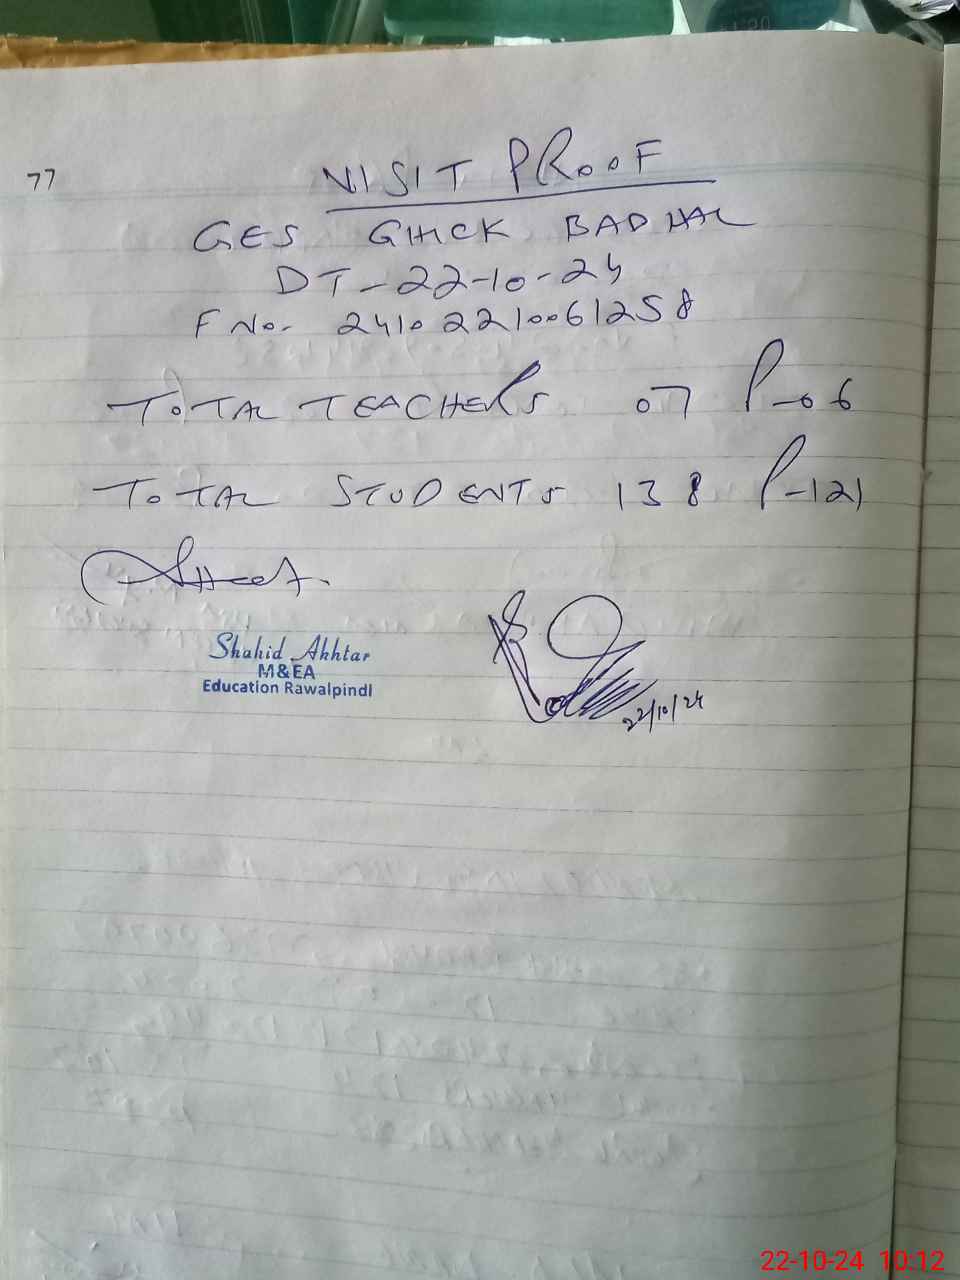 77
VISIT PROOF
GES GHICK BADHAL
DT-22-10-24
F No. 24102210061258
TOTAL TEACHERS 07 P-06
TOTAL STUDENTS 138 P-121
Shahid Akhtar
M&EA
Education Rawalpindi
22/10/24
22-10-24 10:12